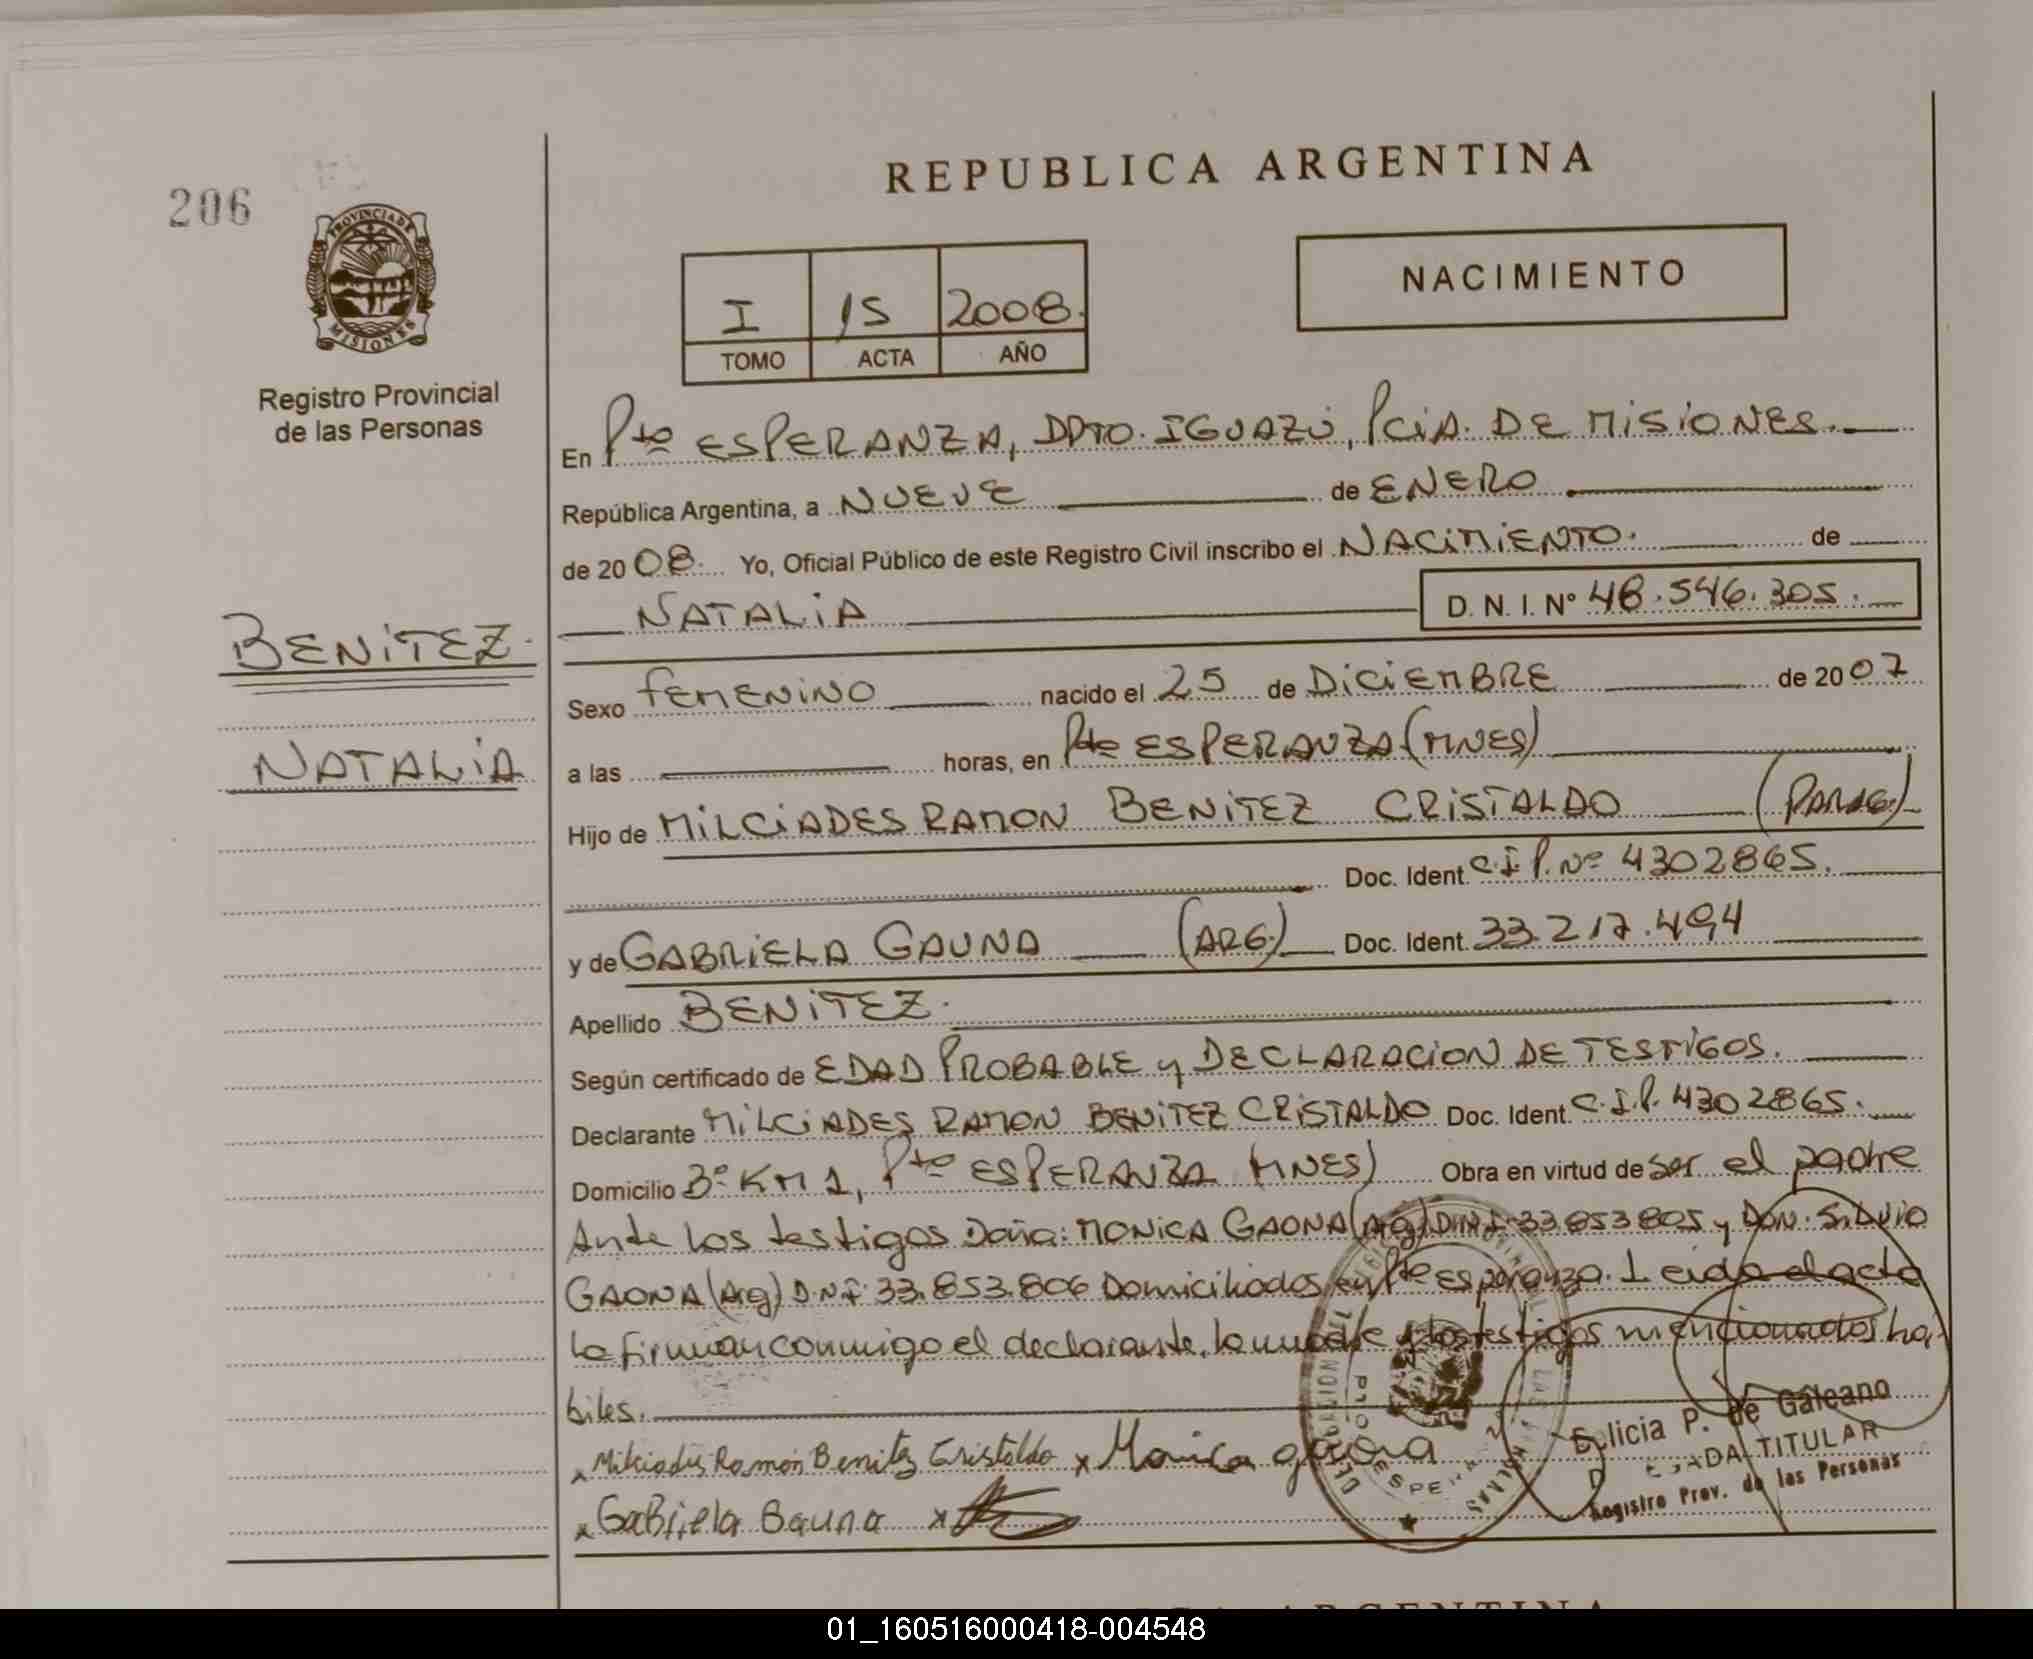 REPUBLICA ARGENTINA
206
PROVINCIA DE
MISIONES
Registro Provincial
de las Personas
I 15 2008.
TOMO ACTA AÑO
NACIMIENTO
En Pto ESPERANZA, DPTO. IGUAZÚ, PCiA. DE MiSiONES.
República Argentina, a NUEVE de ENERO
de 2008. Yo, Oficial Público de este Registro Civil inscribo el NACiMiENTO. de
NATALiA D. N. I. Nº 48.546.305.
BENiTEZ.
NATALiA
Sexo FEMENiNO nacido el 25 de DiCiEMBRE de 2007
a las horas, en Pto ESPERANZA (MNES)
Hijo de MiLCiADES RAMON BENiTEZ CRiSTALDO (PARAG.)
Doc. Ident. C.I.P. Nº 4302865.
y de GABRiELA GAUNA (ARG.) Doc. Ident. 33.217.494
Apellido BENiTEZ.
Según certificado de EDAD PROBABLE y DECLARACiON DE TESTiGOS.
Declarante MiLCiADES RAMON BENiTEZ CRiSTALDO Doc. Ident. C.I.P. 4302865.
Domicilio Bº KM 1, Pto ESPERANZA (MNES) Obra en virtud de ser el padre
Ante los testigos Doña: MONiCA GAONA (Arg) D.N.I. 33.853.805 y DON: SiLViO
GAONA (Arg) D.N.I. 33.853.806 Domiciliados en Pto Esperanza. Leida el acta
la firman conmigo el declarante, la madre y los testigos mencionados há-
biles.
x Milciades Ramón Benitez Cristaldo x Monica gaona
x GaBriela Gauna x
Felicia P. de Galeano
TITULAR
Registro Prov. de las Personas
01_160516000418-004548